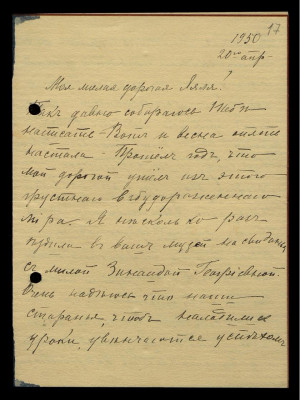 17
1950
20го апр.
Моя милая дорогая Ляля!
Какъ давно собираюсь тебѣ
написать. Вотъ и весна опять
настала. Прошелъ годъ, что
мой дорогой ушелъ изъ этого
грустнаго взбудораженнаго
мира. Я нѣсколько разъ
ходила въ вашъ музей на свиданіе
съ милой Зинаидой Георгіевной.
Очень надѣюсь что наши
старанья, чтобъ наладились
уроки, увѣнчаются успѣхомъ